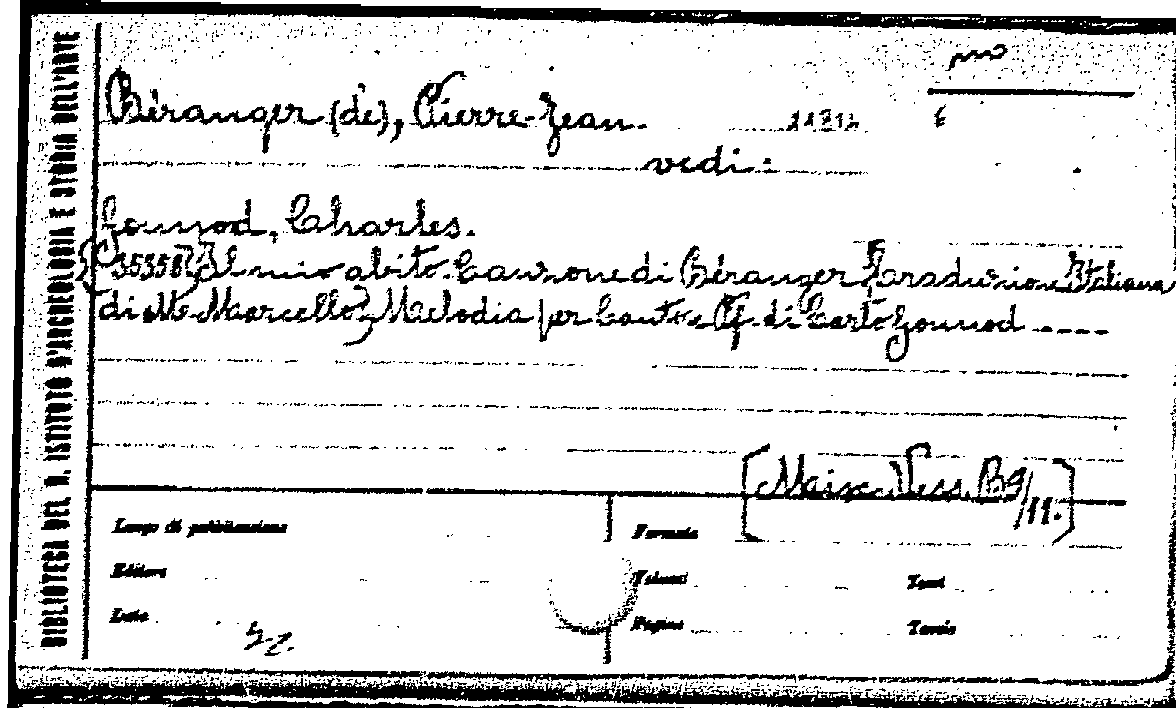 BIBLIOTECA DEL R. ISTITUTO D'ARCHEOLOGIA E STORIA DELL'ARTE
Béranger (de), Pierre-Jean.
vedi:
Gounod, Charles.
Il mio abito. Canzone di Béranger Traduzione Italiana
di M. Marcello Melodia per Canto e Pf. di Carlo Gounod ----
Luogo di pubblicazione
Formato
Editore
Volumi
Tomi
Data
Pagine
Tavole